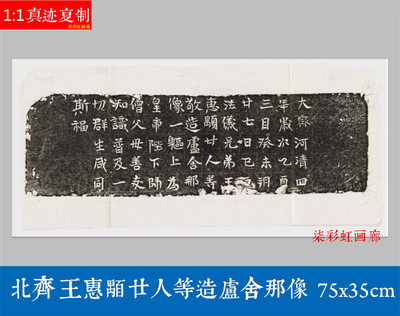 1:1真迹复制
柒彩虹画廊
大齊河清四
年歲次乙酉
三月癸未朔
廿七日己酉
法儀兄弟王
惠顒廿人等
敬造盧舍那
像一軀上為
皇帝陛下師
僧父母善友
知識普及一
切群生咸同
斯福
柒彩虹画廊
北齊王惠顒廿人等造盧舍那像 75x35cm